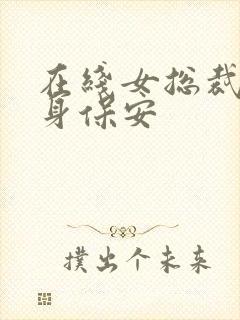 在线女总裁
身保安
撲出个未来